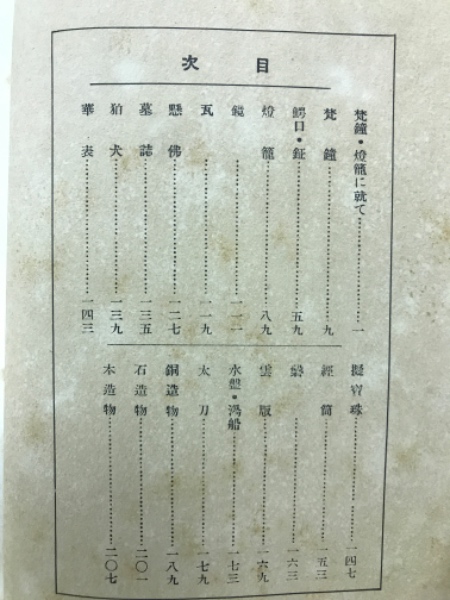 目次
梵鐘・燈籠に就て……一
梵鐘……九
鰐口・鉦……五九
燈籠……八九
鏡……一一一
瓦……一一九
懸佛……一二七
墓誌……一三五
狛犬……一三九
華表……一四三
擬寶珠……一四七
經筒……一五三
磬……一六三
雲版……一六九
水盤・湯船……一七三
太刀……一七九
銅造物……一八九
石造物……二〇一
木造物……二〇七